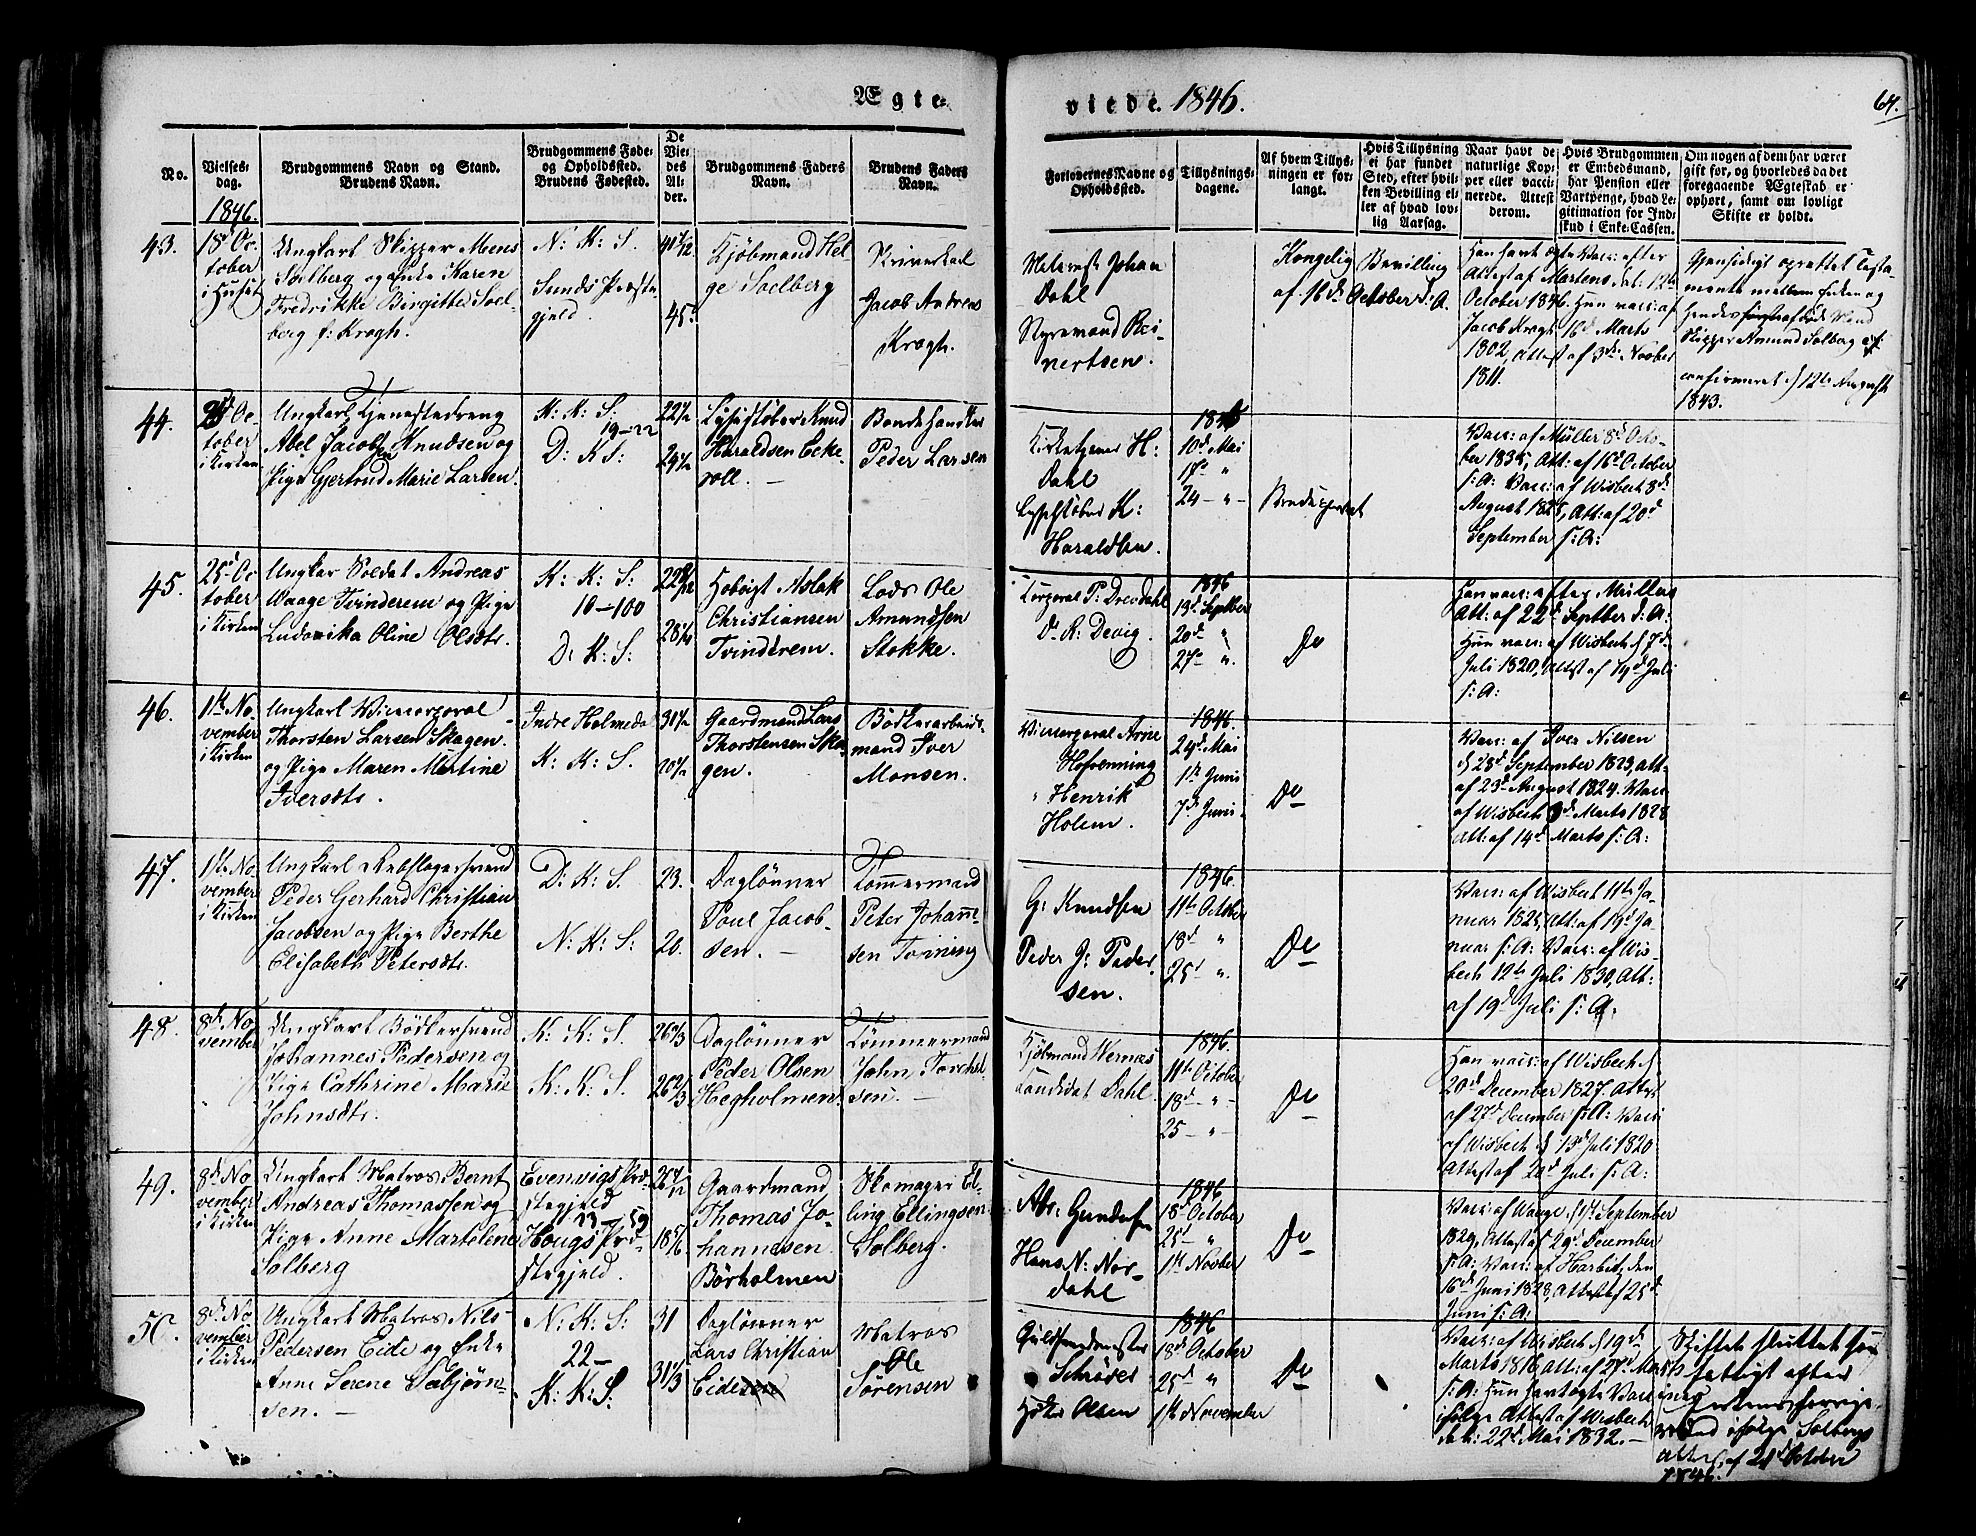 Ægte-
viede. 1846.
64.
No.
Vielses-
dag.
1846.
Brudgommens Navn og Stand.
Brudens Navn.
Brudgommens Føde-
og Opholdssted.
Brudens Fødested.
De
Vie-
des
Al-
der.
Brudgommens Faders
Navn.
Brudens Faders
Navn.
Forlovernes Navne og
Opholdssted.
Tillysnings-
dagene.
Af hvem Tillys-
ningen er for-
langt.
Hvis Tillysning
ei har fundet
Sted, efter hvil-
ken Bevilling el-
ler af hvad lov-
lig Aarsag.
Naar havt de
naturlige Kop-
per eller vacci-
nerede. Attest
derom.
Hvis Brudgommen
er Embedsmand,
har Pension eller
Vartpenge, hvad Le-
gitimation for Ind-
skud i Enke-Cassen.
Om nogen af dem har været
gift før, og hvorledes da det
foregaaende Ægteskab er
ophørt, samt om lovligt
Skifte er holdt.
43.
18d Oc-
tober
i Huset
Ungkarl Skipper Mons
Soelberg og Enke Karen
Fredrikke Birgitte Soel-
berg f: Krogh.
N: K: S.
Sunds Præste-
gjeld.
45
Kjøbmand Hel-
ge Soelberg
Jacob Andreas
Krogh.
Johan
Dahl
Rei-
nertsen.
Kongelig Bevilling
af 16d October d. A.
Han havt
Attest af Martens dat: 12te
October 1846. Hun vacc: af
Jacob Krogh 16d Marts
1802, Attest af 3d Novber
1811.
Gjensidigt oprettet Testa-
mente mellem Enken og
Skipper Amund Solberg
confirmeret d 12te August
1843.
44.
October
i Kirken
Ungkarl Tjenestedreng
Abel Jacob Knudsen og
Pige Gjertrud Marie Larsen.
K: K: S:
19-22
D: K: S:
22 1/2
29 1/2
Knud
Haraldsen Ecke-
roll.
Bonde
Peder Larsen
Kirketjener H:
Dahl
K:
Haraldsen.
10d Mai
17d "
24 - "
Brudeparret
Vacc: af Müller 8d Octo-
ber 1835, Att: af 16d October
s: A: Vacc: af Wisbech 8d
August 1825, Att: af 20d
September s: A:
45.
25d Oc-
tober
i Kirken
Ungkar Soldat Andreas
Waage Tvinderem og Pige
Ludovika Oline Olsdtr.
K: K: S:
10-100
D: K: S:
28 1/4
Aslak
Christiansen
Tvinderem.
Lods Ole
Amundsen
Stokke.
Corporal P: Drevdahl
Do R: Devig.
1846
13d Septber
20d "
27d "
Do
Han vacc: efter Müllers
Att: af 22d Septber d: A:
Hun vacc: af Wisbech d 7d
Juli 1820, Attest af 19d Juli
s: A:
46.
1ste No-
vember
i Kirken
Ungkarl Vicecorporal
Thorsten Larsen Skagen
og Pige Maren Martine
Iversdtr.
Indre Holmedal
K: K: S.
31 1/2
20 1/2
Gaardmand Lars
Thorstensen Ska-
gen.
Bødkerarbeids-
mand Iver
Monsen.
Vicecorporal Arne
Henrik
Holm.
1846
24d Mai
1ste Juni
7d Juni
Do
Vacc: af Iver Nilsen
d 28d September 1823, Att:
af 23d August 1824. Vacc:
af Wisbech 3d Marts 1828
Att: af 14d Marts s: A:
47.
1ste No-
vember
i Kirken
Ungkarl Rebslagersvend
Peder Gerhard Christian
Jacobsen og Pige Berthe
Elisabeth Petersdtr.
D: K: S.
N: K: S:
23.
20.
Daglønner
Poul Jacob-
sen.
Tømmermand
Peter Johann-
sen Torning
G: Knudsen
Peder J: Peder-
sen.
1846.
11te October
18d "
25d "
Do
Vacc: af Wisbech 11te Ja-
nuar 1825, Att: af 19d Ja-
nuar s: A: Vacc: af Wis-
bech 12te Juli 1830, Att:
af 19d Juli s: A:
48.
8d No-
vember
Ungkarl Bødkersvend
Johannes Pedersen og
Pige Cathrine Marie
Johnsdtr.
K: K: S.
K: K: S.
26 2/3
26 2/3
Daglønner
Peder Olsen
Hegholmen.
Tømmermand
John Torchel-
sen.
Kjøbmand Wernæs
Candidat Dahl
1846.
11te October
18d - "
25 - "
Do
Han vacc: af Wisbech d
20d December 1827. Attest
af 27d December s: A: Vacc:
af Wisbech d 13d Juli 1820
Attest af 20d Juli s: A:
49.
8d No-
vember
i Kirken
Ungkarl Matros Bernt
Andreas Thomassen og
Pige Anne Martelene
Solberg
Evenvigs Præ-
stegjeld
23-59
Hougs Præ-
stegjeld.
18 5/6
Gaardmand
Thomas Jo-
hannesen
Børholmen
Skomager El-
ling Ellingsen
Solberg.
Hans N: Nor-
dahl
1846
18d October
25d "
1ste Novber
Do
Vacc: af Waage d 1ste September
1829, Attest af 29d December
s: A: Vacc: af Harbitz, den
16d Juni 1828, Attest af 25d
Juni s: A:
50.
8d No-
vember
i Kirken
Ungkarl Matros Nils
Pedersen Eide og Enke
Anne Serene Sæbjørn-
sen.
N: K: S:
22-
K: K: S.
31
31 1/3
Daglønner
Lars Christian
Eidesen
Matros
Ole
Sørensen
Schrøder
Olsen
1846
18d October
25d "
1ste November
Do
Vacc: af Wisbech d 19d
Marts 1816 Att: af 27d Marts
s: A: Hun foretogte Vacc:
ifølge Attest af Wisbech
dat: 22d Mai 1832.
Skiftet sluttet som
fattigt efter
Enkens forrige
Mand ifølge Solbergs
Attest af 21d October
1846.